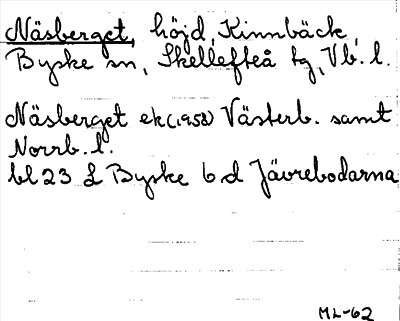 Näsberget, höjd, Kinnbäck,
Byske sn, Skellefteå tg, Vb. l.
Näsberget ek (1958) Västerb. samt
Norrb. l.
bl 23 L Byske 6 d Jävrebodarna
ML-62